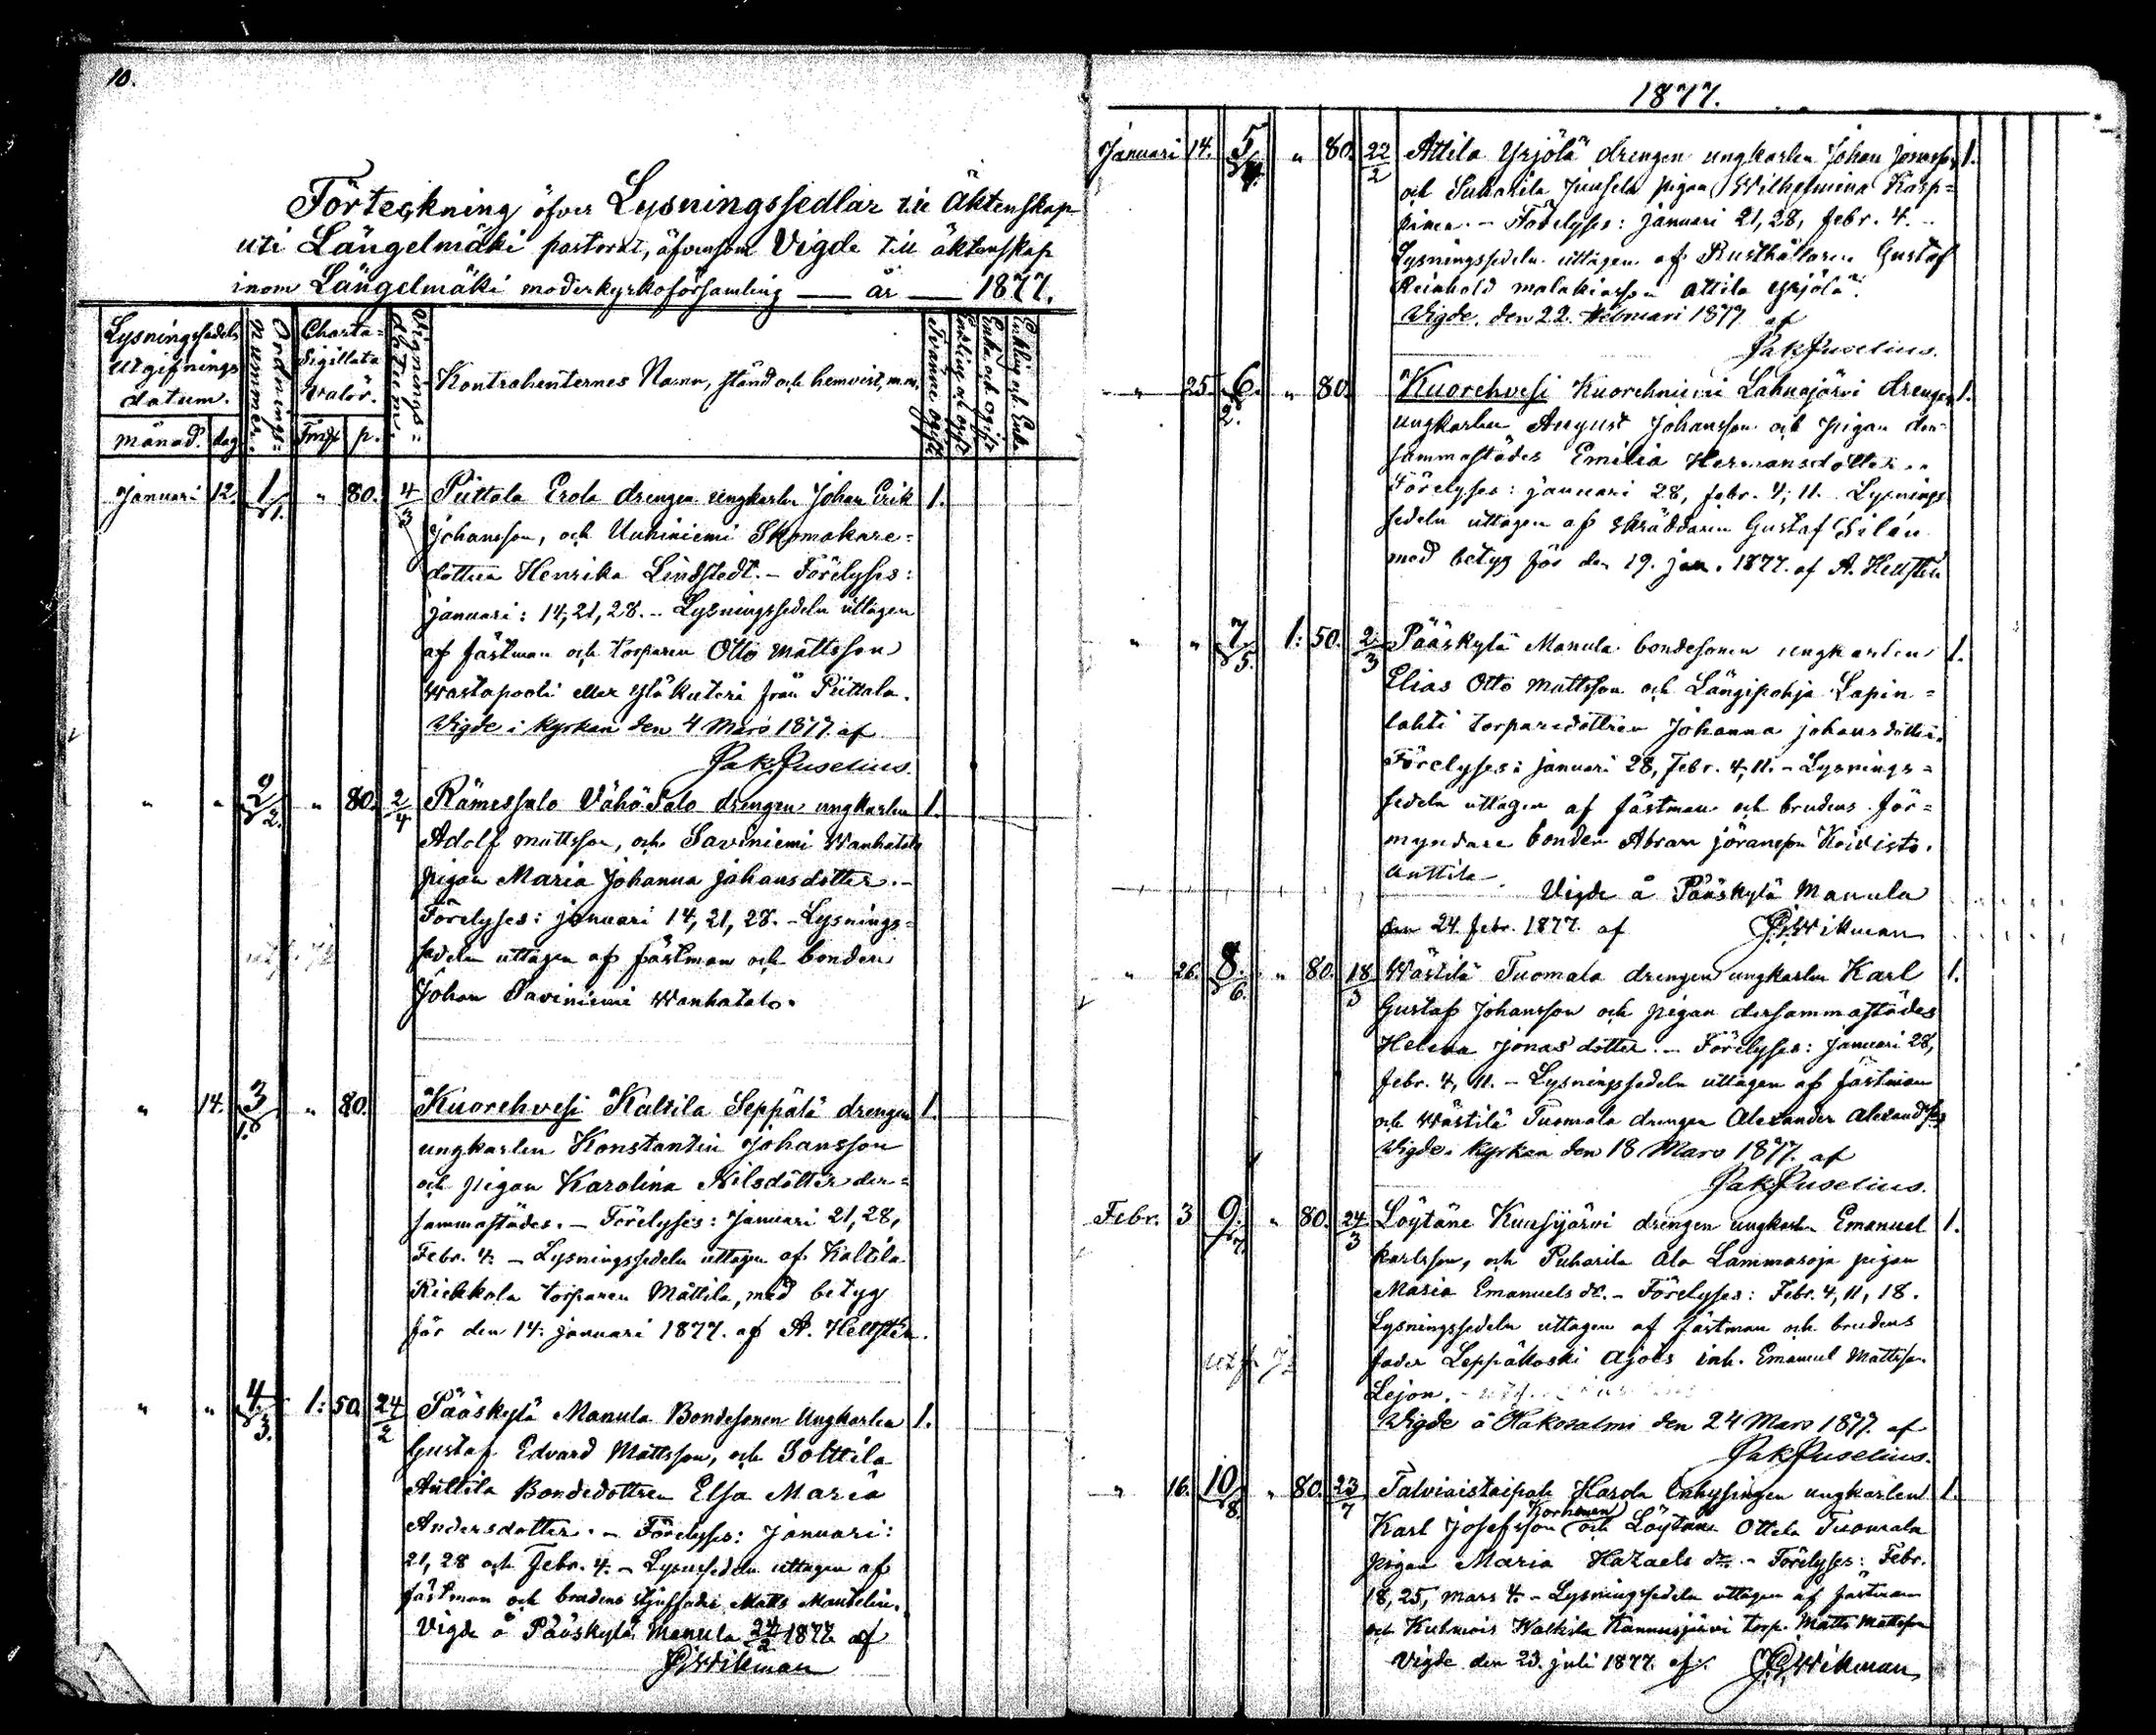 10.
Förteckning öfver Lysningssedlar till Äktenskap
uti Längelmäki pastorat, äfvensom Vigde till äktenskap
inom Längelmäki moderkyrkoförsamling — år — 1877.
Lysningssedelns utgifnings datum.
månad. dag
Ordnings= nummer.
Charta= Sigillata Valör.
Fmk p.
Vignings= datum.
Kontrahenternes Namn, stånd och hemvist, m.m.
Tvänne ogifte
Enkling och ogift
Enka och ogift
Enkling och Enka
Januari 12. 1 1. " 80. 4/3 Piittala Erola drengen ungkarlen Johan Erik 1.
Johansson, och Uuhiniemi Skomakare=
dottren Henrika Lindstedt. – Förelyses:
januari: 14, 21, 28. – Lysningssedeln uttagen
af fästman och torparen Otto Mattsson
från Piittala.
Vigde i kyrkan den 4 Mars 1877. af
Jak. Juselius.
" " 2 2. " 80. 2/4 Rämessalo Vähä Salo drengen ungkarlen 1.
Adolf Mattsson, och Saviniemi Wanhatalo
pigan Maria Johanna Johansdotter. –
Förelyses: januari 14, 21, 28. – Lysnings=
sedeln uttagen af fästman och bonden
Johan Saviniemi Wanhatalo.
" 14. 3 1. " 80. Kuorehvesi Kaltila Seppälä drengen 1.
ungkarlen Konstantin Johansson
och pigan Karolina Nilsdotter der=
sammastädes. – Förelyses: Januari 21, 28,
Febr. 4. – Lysningssedeln uttagen af Kaltila
Riekkola torparen Mattila, med betyg
för den 14. januari 1877. af A. Hellstén.
" " 4. 3. 1: 50. 24/2 Pääskylä Manula Bondesonen Ungkarlen 1.
Gustaf Edvard Mattsson, och Solttila
Anttila Bondedottren Elsa Maria
Andersdotter. – Förelyses: Januari:
21, 28 och Febr. 4. – Lysnsedeln uttagen af
fästman och brudens styffader Matts Mantelin.
Vigde å Pääskylä Manula 24/2 1877. af
J. Wikman
1877.
Januari 14. 5 4. " 80. 22/2 Attila Yrjölä drengen ungkarlen Johan Jonasson 1.
och pigan Wilhelmina Karp=
pinen. – Förelyses: Januari 21, 28, febr. 4. –
Lysningssedeln uttagen af Rusthållaren Gustaf
Reinhold Malakiasson Attila Yrjölä.
Vigde den 22. Februari 1877 af
Jak. Juselius.
" 25. 6. 2. " 80. Kuorehvesi Kuorehniemi Lahnajärvi drengen 1.
ungkarlen August Johansson och pigan der=
sammastädes Emilia Hermansdotter. –
Förelyses: januari 28, febr. 4, 11. Lysnings
sedeln uttagen af skräddaren Gustaf Silén
med betyg för den 19. jan. 1877. af A. Hellstén
" " 7. 5. 1: 50. 2/3 Pääskylä Manula bondesonen ungkarlen 1.
Elias Otto Mattsson och Längipohja Lapin=
lahti torparedottren Johanna Johansdotter.
Förelyses: januari 28, Febr. 4, 11. – Lysnings=
sedeln uttagen af fästman och brudens för=
myndare bonden Abram Jöransson Koivisto
Anttila.
Vigde å Pääskylä Manula
den 24. febr. 1877. af J. Wikman
" 26. 8. 6. " 80. 18/3 Wästilä Tuomala drengen ungkarlen Karl 1.
Gustaf Johansson och pigan dersammastädes
Helena Jonasdotter. – Förelyses: Januari 28,
febr. 4, 11. – Lysningssedeln uttagen af fästman
och Wästilä Tuomala drengen Alexander Alexandersson
Vigde i kyrkan den 18 Mars 1877. af
Jak. Juselius.
Febr. 3 9. 7. " 80. 24/3 Löytäne Kuusijärvi drengen ungkarlen Emanuel 1.
Karlsson, och Puharila Ala Lammasoja pigan
Maria Emanuels dr. – Förelyses: Febr. 4, 11, 18.
Lysningssedeln uttagen af fästman och brudens
fader Leppäkoski Ajois inh. Emanuel Mattsson
Lejon. –
Vigde å Hakosalmi den 24 Mars 1877. af
Jak. Juselius.
" 16. 10 8. " 80. 23/7 Talviaistaipale Harola Inhysingen ungkarlen 1.
Karl Josefsson Korhonen och Löytäne Ottela Tuomala
pigan Maria Hazaels dr. – Förelyses: Febr.
18, 25, mars 4. – Lysningssedeln uttagen af fästman
och Kuhmois Walkila Kannusjärvi torp. Matts Mattsson
Vigde den 23. juli 1877. af J. Wikman